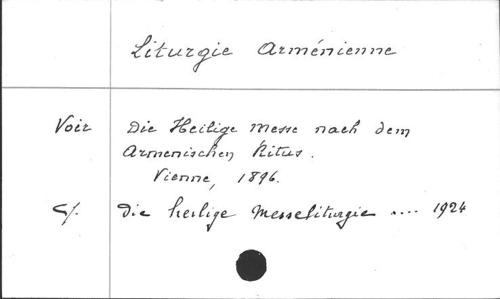 Liturgie Arménienne
Voir Die Heilige Messe nach dem
Armenischen Ritus.
Vienne, 1896.
Cf. Die heilige Messeliturgie .... 1924